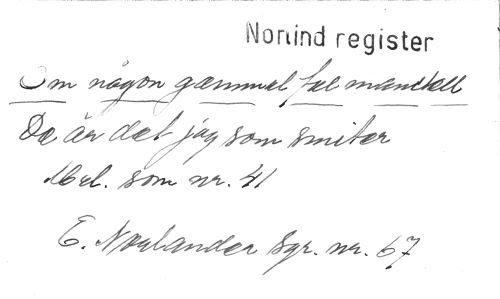 Norlind register
Om någon gammal ful mantall
Da är det jag som smiter
Mel. som nr. 41
E. Norlander Sgr. nr. 67